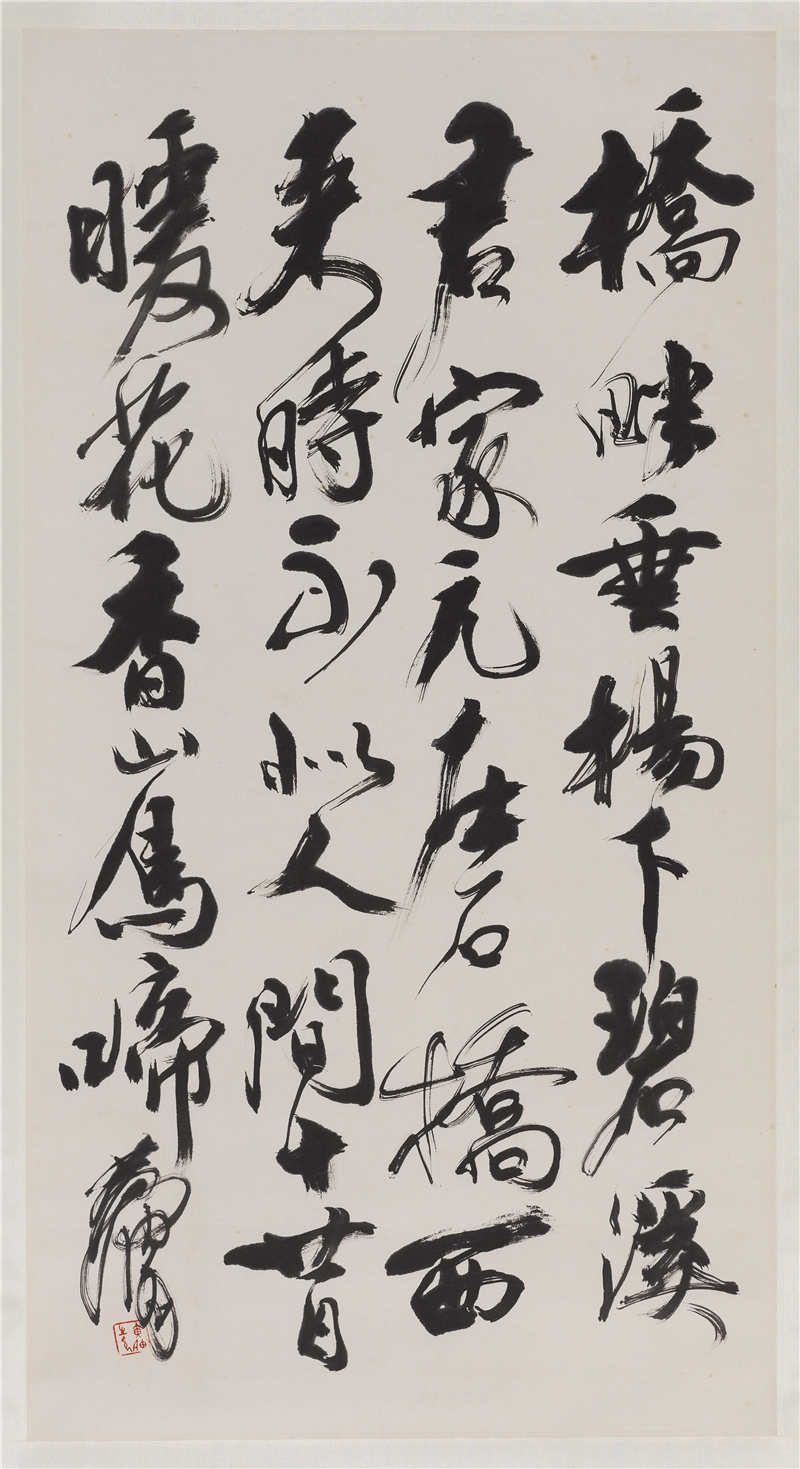 橋畔垂楊下碧溪
君家元在石橋西
来時不似人間卋日
暖花香山鳥啼